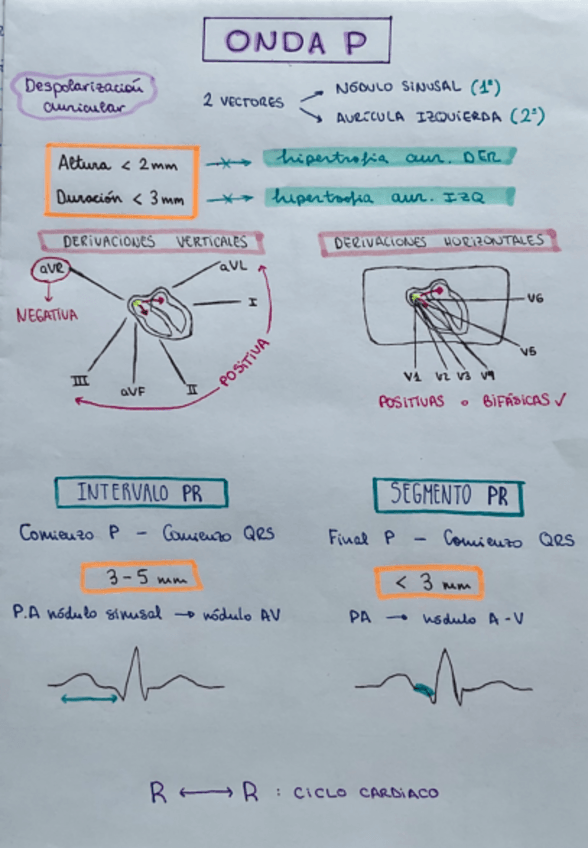 ONDA P
Despolarización
auricular
2 VECTORES
NÓDULO SINUSAL (1º)
AURÍCULA IZQUIERDA (2º)
Altura < 2mm
hipertrofia aur. DER
Duración < 3mm
hipertrofia aur. IZQ
DERIVACIONES VERTICALES
aVR
aVL
I
NEGATIVA
III
aVF
II
POSITIVA
DERIVACIONES HORIZONTALES
V6
V5
V1 V2 V3 V4
POSITIVAS o BIFÁSICAS ✓
INTERVALO PR
Comienzo P - Comienzo QRS
3-5 mm
P.A nódulo sinusal → nódulo AV
SEGMENTO PR
Final P - Comienzo QRS
< 3 mm
PA → nódulo A-V
R ⟷ R : CICLO CARDÍACO